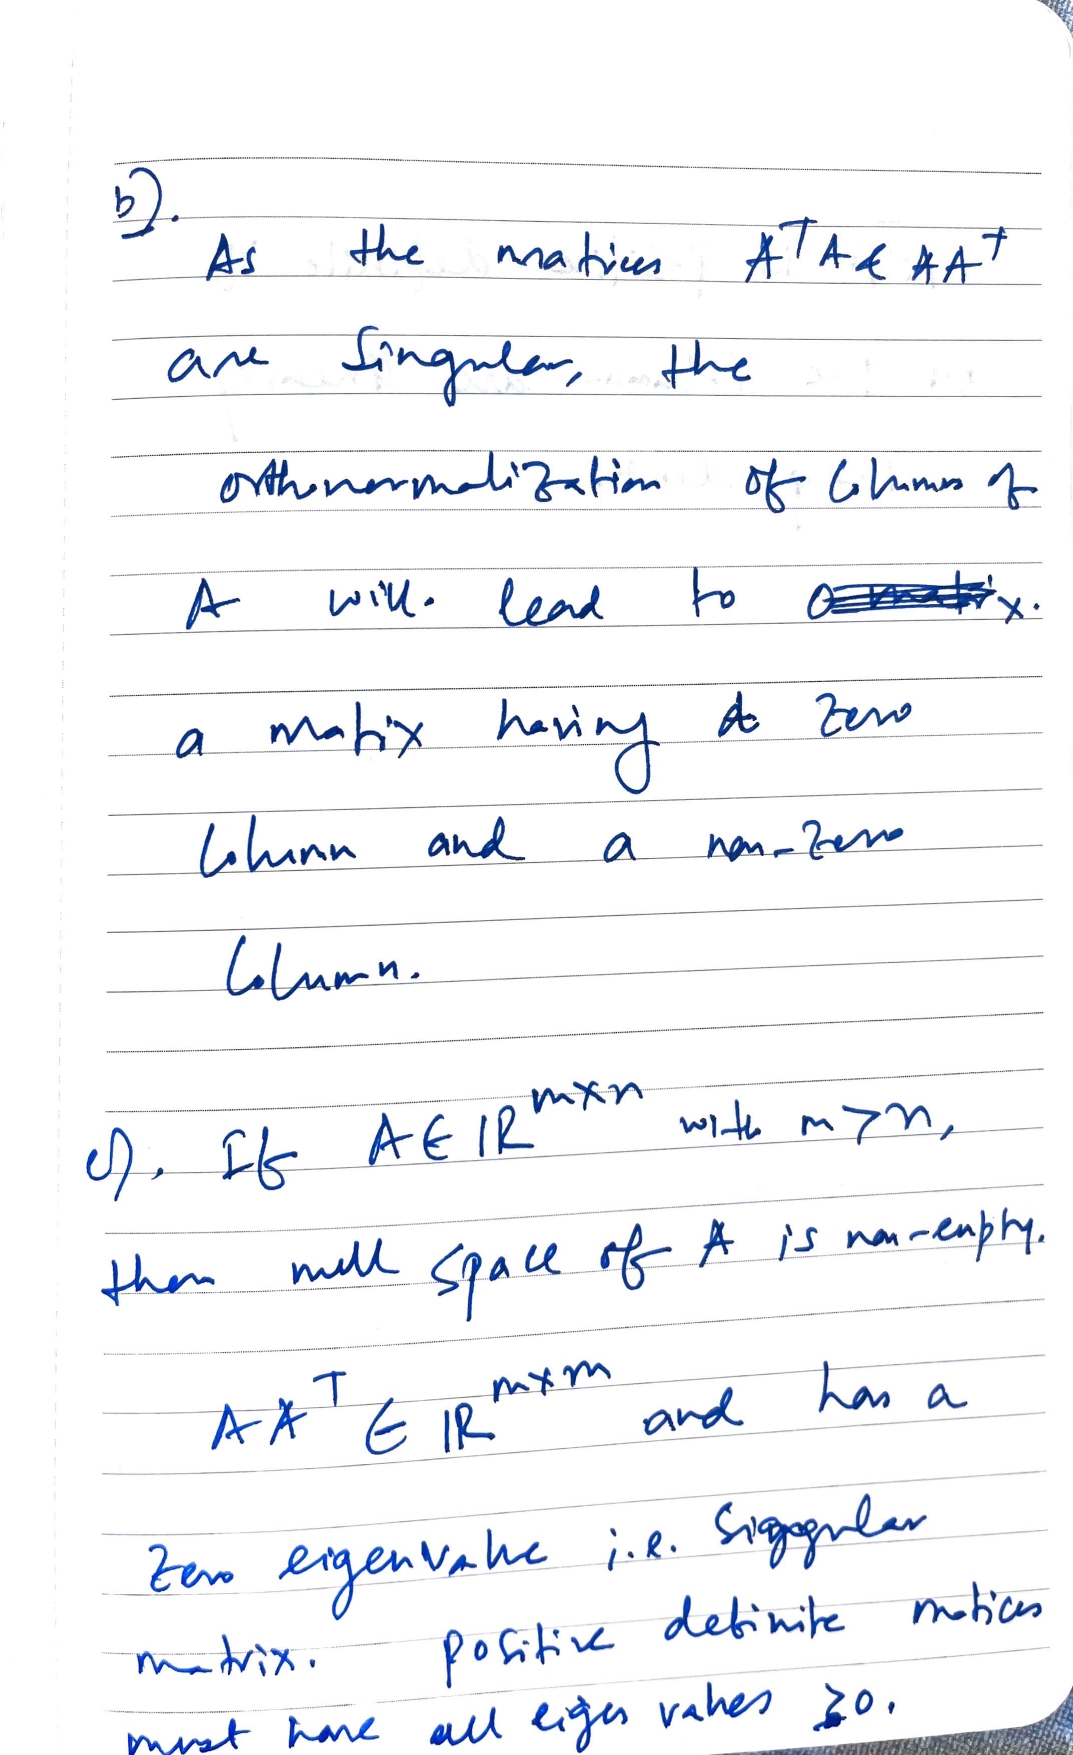 b).
As the matrices AᵀA & AAᵀ
are singular, the
orthonormalization of Columns of
A will. lead to
a matrix having a zero
Column and a non-zero
Column.
c). If A ∈ ℝᵐˣⁿ with m > n,
then null space of A is non-empty.
AAᵀ ∈ ℝᵐˣᵐ and has a
Zero eigenvalue i.e. Singular
matrix. positive definite matrices
must have all eigen values ≥0.